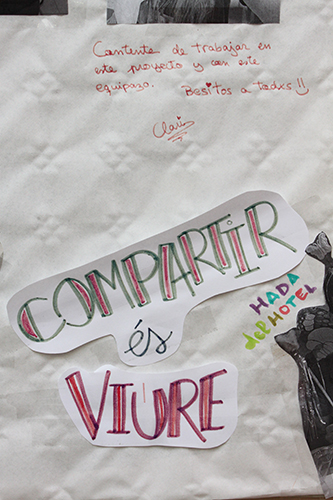 Contenta de trabajar en
este proyecto y con este
equipazo. Besitos a todxs!!
Claris
COMPARTIR
és
VIURE
HADA
del HOTEL